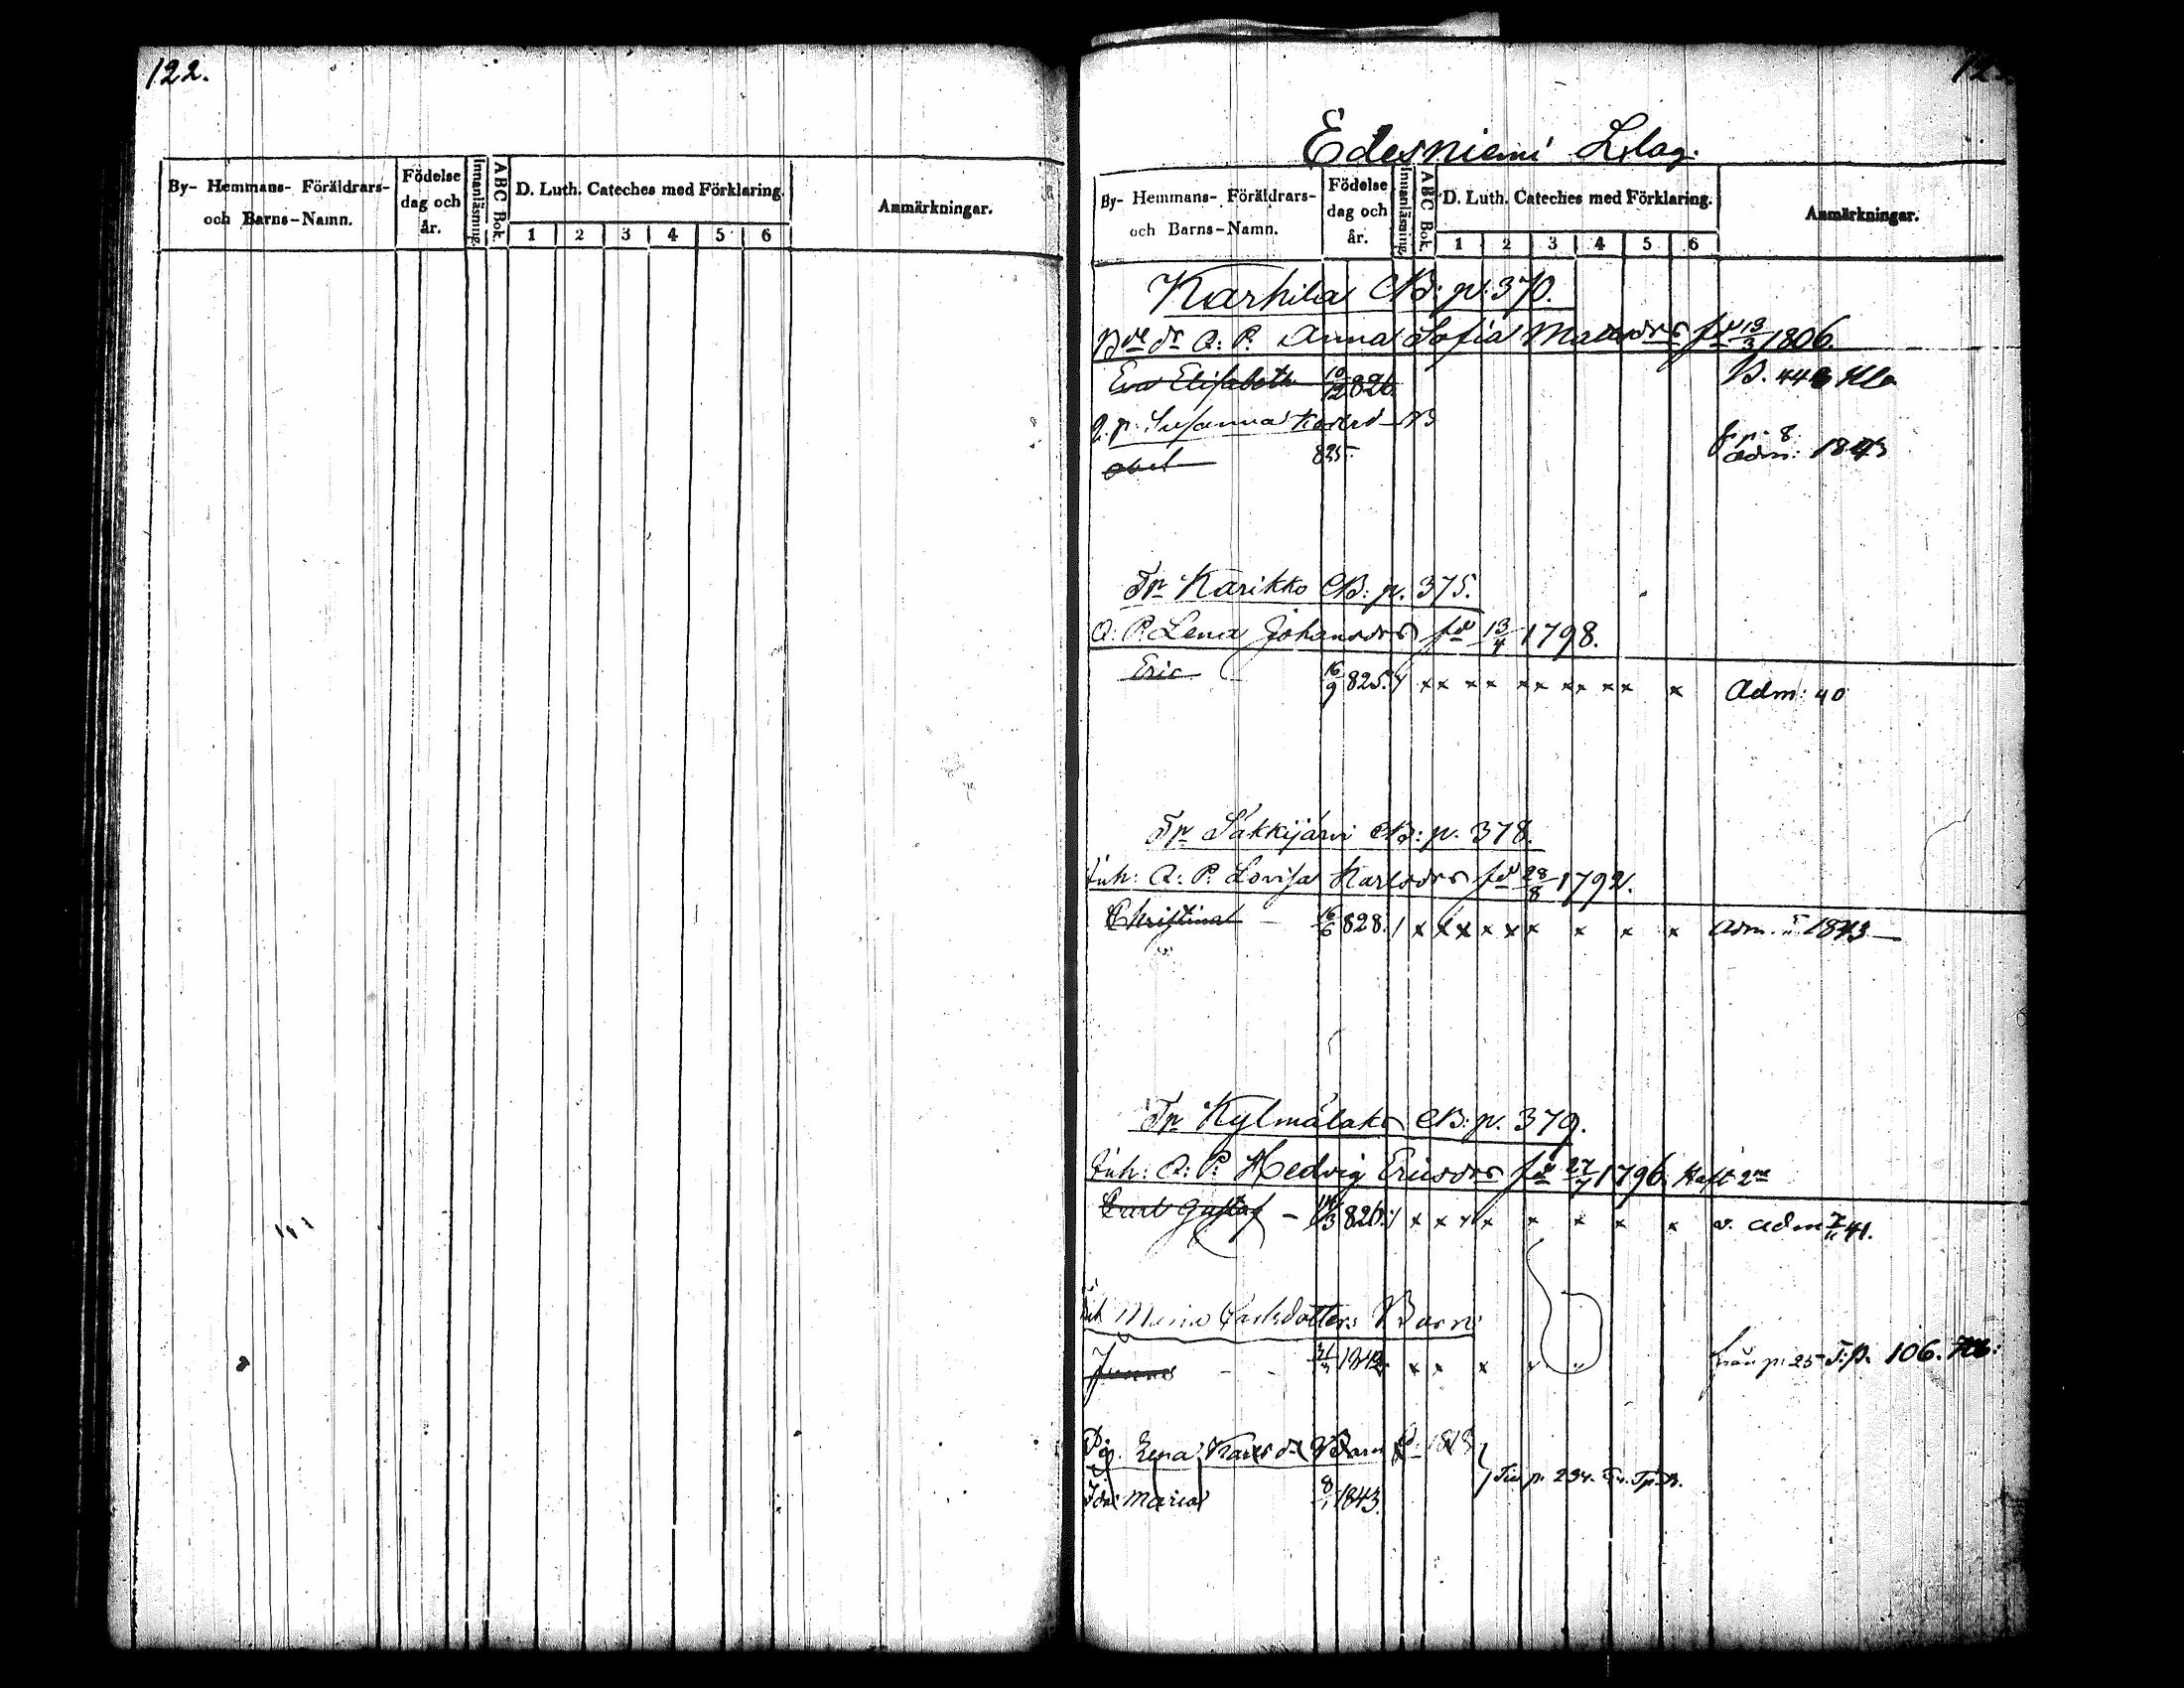 122.
By- Hemmans- Föräldrars- och Barns-Namn.
Födelse dag och år.
Innanläsning.
ABC Bok.
D. Luth. Cateches med Förklaring.
1 2 3 4 5 6
Anmärkningar.
Edesniemi Lslag.
By- Hemmans- Föräldrars- och Barns-Namn.
Födelse dag och år.
Innanläsning.
ABC Bok.
D. Luth. Cateches med Förklaring.
1 2 3 4 5 6
Anmärkningar.
Karhila CB: p: 370.
Q: P. Anna Sofia 1806.
Eva Elisabeth 10/12 826.
Q. p. Susanna
825. adm: 1843
Tp Karikko CB: p. 375.
Q: P. Lena Johansdr fd 13/4 1798.
Eric 16/9 825. / x x x x x x x x x x x Adm: 40
Tp Säkkijärvi CB: p. 378.
Inh: Q: P. Lovisa Karlsdr fd 28/8 1792.
Christina — 16/6 828. / x x x x x x x x x adm. 1843
Tp Kylmälaks CB: p. 379.
Inh: Q: P: Hedvig Ericsdr fd 27/7 1796. Haft 2ne
Carl Gustaf — 826. / x x x x x x x x v. adm 41.
Maria Carlsdotters Barn
1842 x x x x från p: 25 T:p. 106.
Lena Karlsdr Barn
Ida Maria 8/1 1843. p. 234.